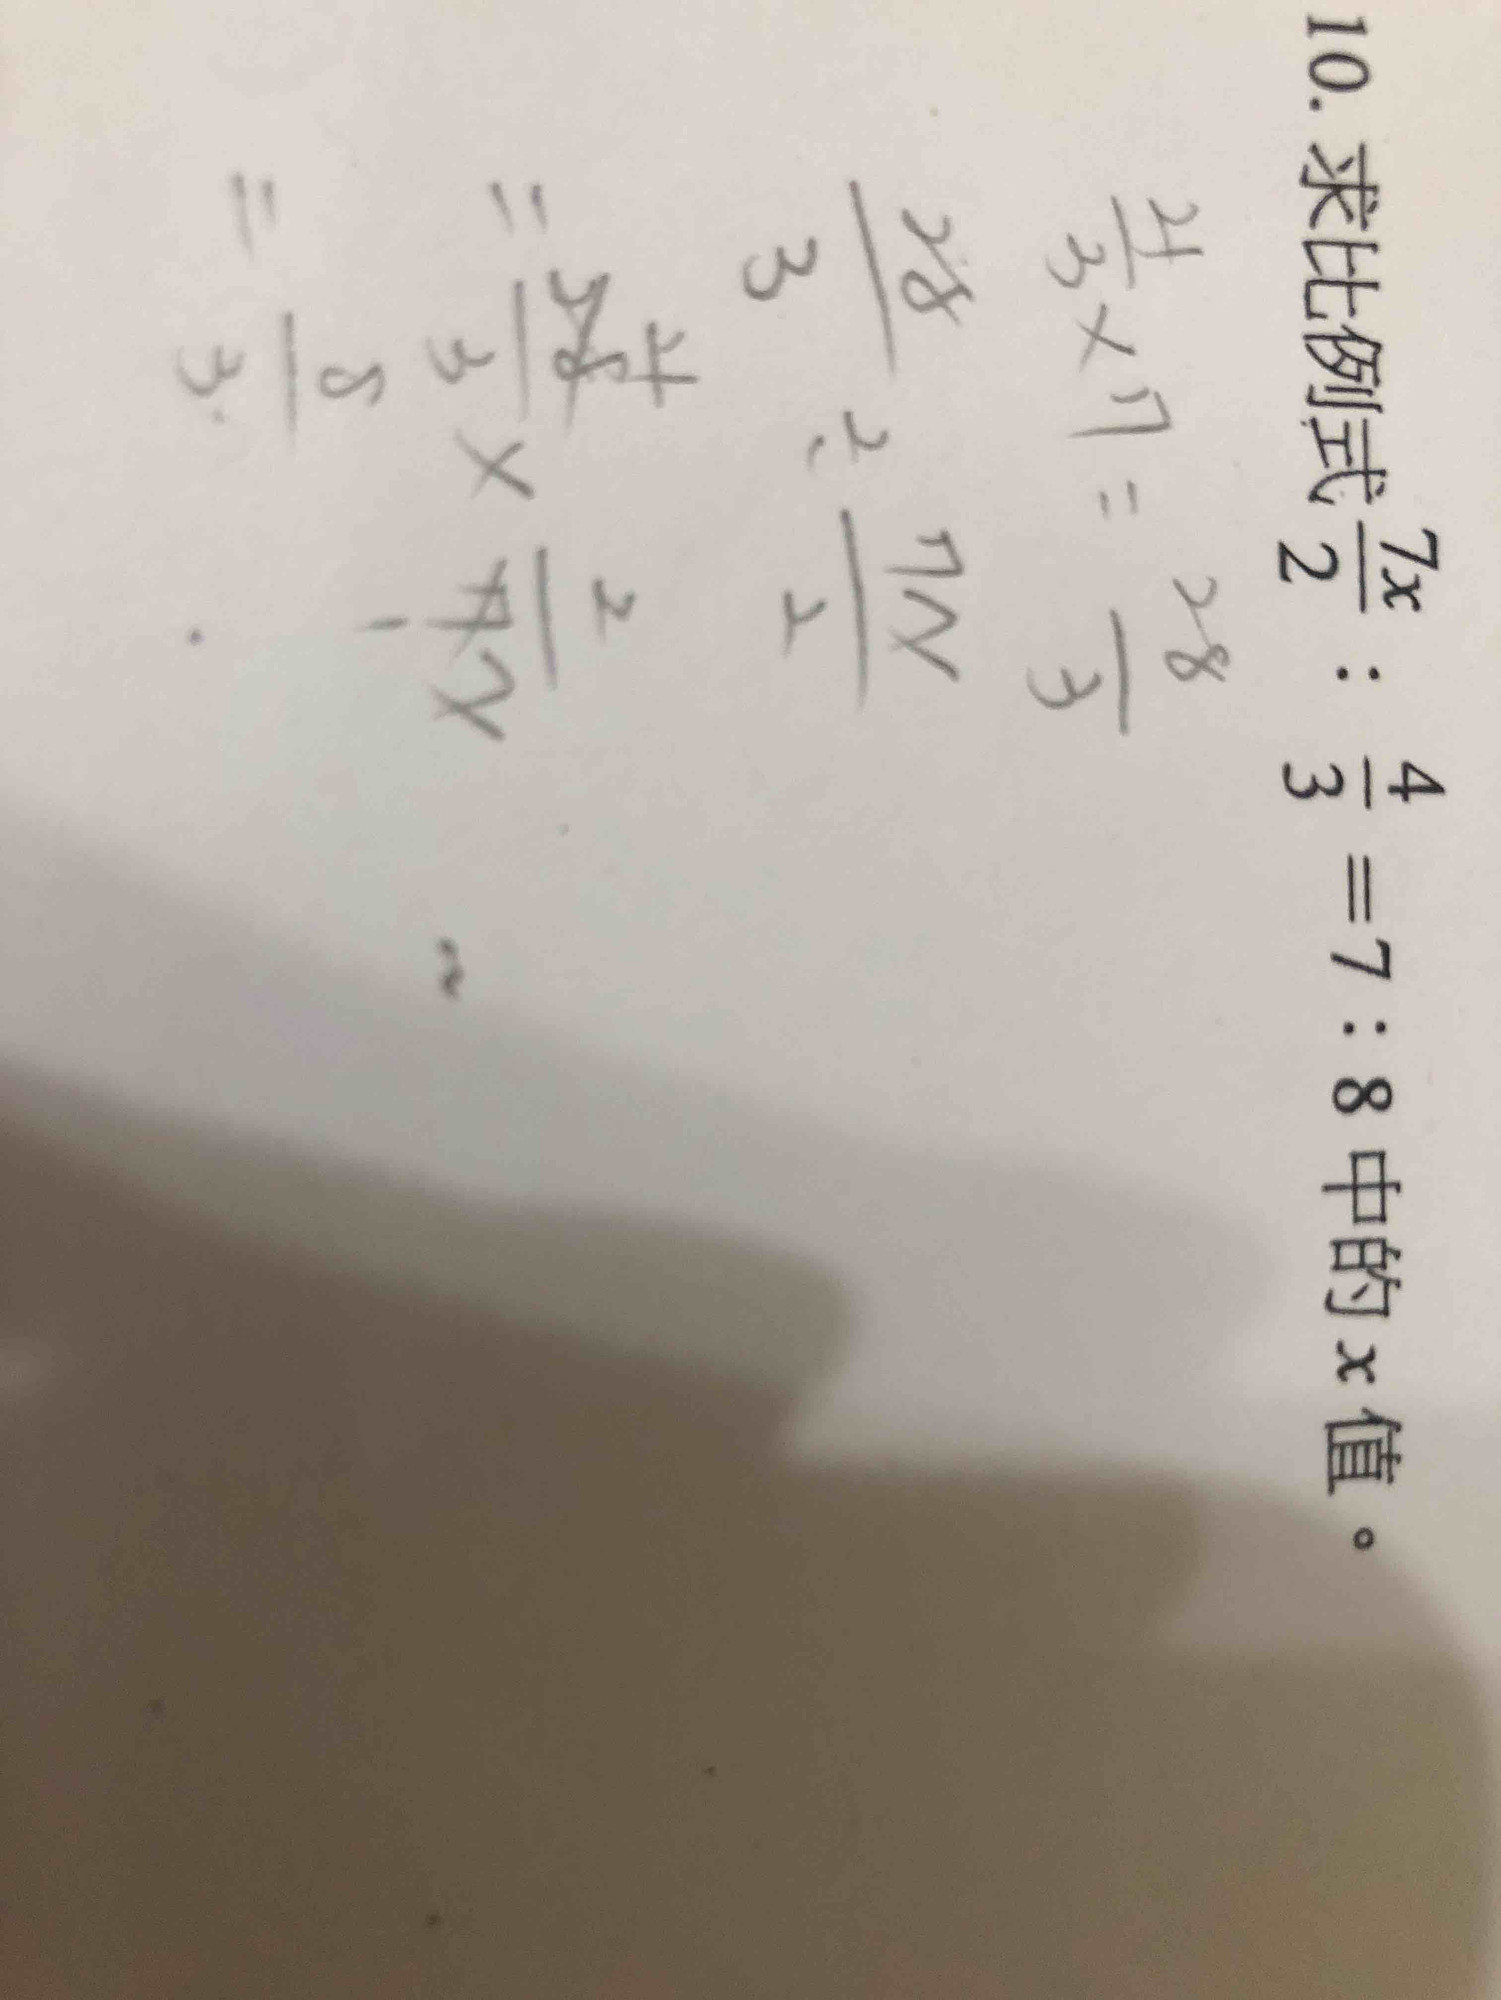 10. 求比例式 7x/2 : 4/3 = 7 : 8 中的 x 值。
4/3 × 7 = 28/3
28/3 ÷ 7x/2
= 28/3 4 × 2/7x 1
= 8/3